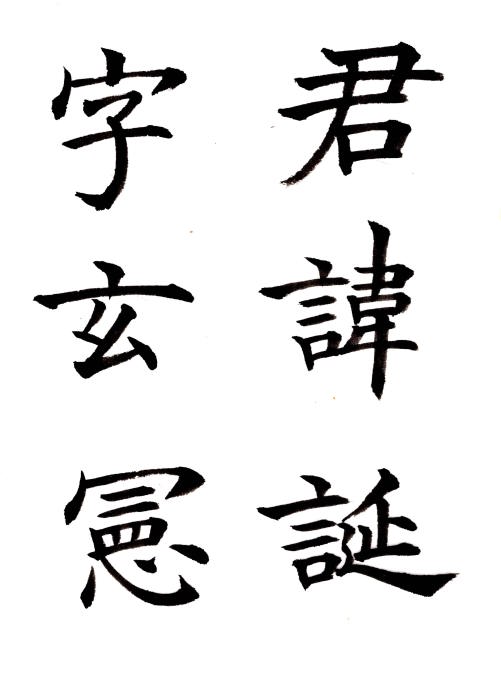 君諱誕
字玄憲